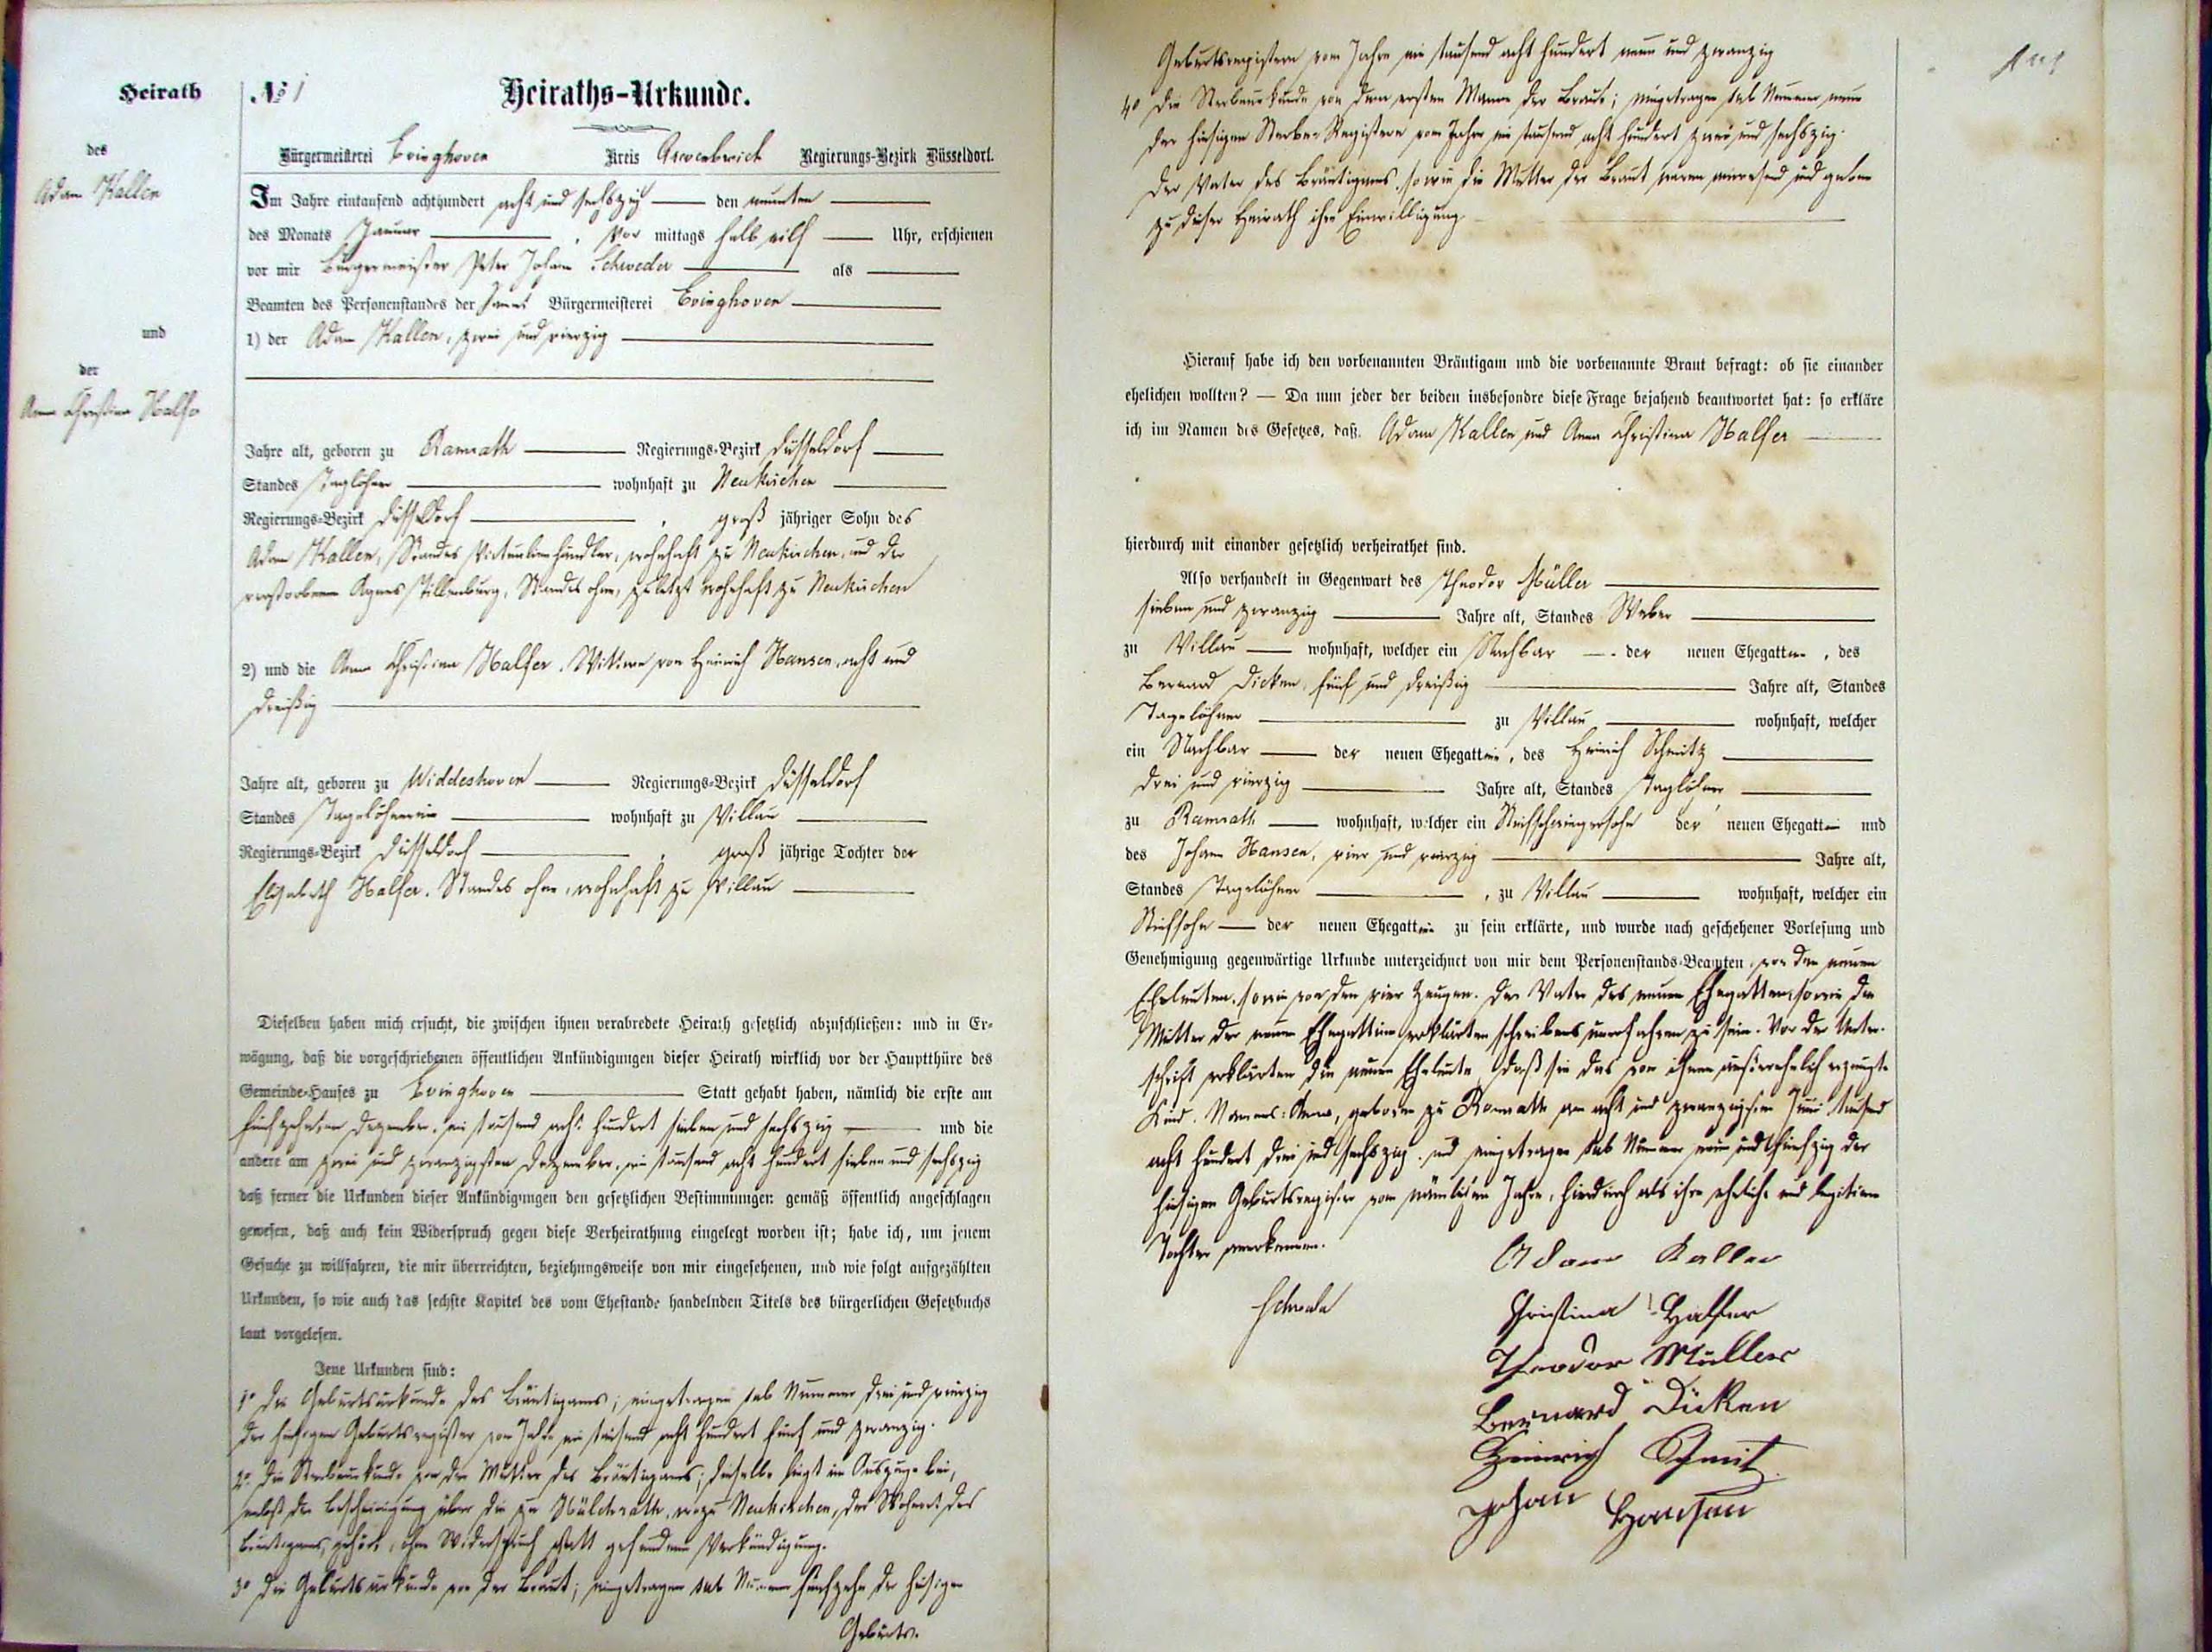 Heirath
des
Adam Kallen
und
der
Anna Christina Halfer
№ 1
Heiraths-Urkunde.
Bürgermeisterei Evinghoven Kreis Grevenbroich Regierungs-Bezirk Düsseldorf.
Im Jahre eintausend achthundert acht und sechszig den neunten
des Monats Januar, Vor mittags halb eilf Uhr, erschienen
vor mir Bürgermeister Peter Johann Schroeder als
Beamten des Personenstandes der Bürgermeisterei Evinghoven
1) der Adam Kallen, zwei und vierzig
Jahre alt, geboren zu Ramrath Regierungs-Bezirk Düsseldorf
Standes Taglöhner wohnhaft zu Neukirchen
Regierungs-Bezirk Düsseldorf, groß jähriger Sohn des
Adam Kallen, Standes Victualienhändler, wohnhaft zu Neukirchen, und der
verstorbenen Agnes Tillenburg, Standes ohne, zuletzt wohnhaft zu Neukirchen
2) und die Anna Christina Halfer, Wittwe von Heinrich Hansen, acht und
dreißig
Jahre alt, geboren zu Widdeshoven Regierungs-Bezirk Düsseldorf
Standes Tagelöhnerin wohnhaft zu Villau
Regierungs-Bezirk Düsseldorf, groß jährige Tochter der
Elisabeth Halfer, Standes ohne, wohnhaft zu Villau
Dieselben haben mich ersucht, die zwischen ihnen verabredete Heirath gesetzlich abzuschließen: und in Er-
wägung, daß die vorgeschriebenen öffentlichen Ankündigungen dieser Heirath wirklich vor der Hauptthüre des
Gemeinde-Hauses zu Evinghoven Statt gehabt haben, nämlich die erste am
fünfzehnten Dezember, ein tausend acht hundert sieben und sechszig und die
andere am zwei und zwanzigsten Dezember, ein tausend acht hundert sieben und sechszig
daß ferner die Urkunden dieser Ankündigungen den gesetzlichen Bestimmungen gemäß öffentlich angeschlagen
gewesen, daß auch kein Widerspruch gegen diese Verheirathung eingelegt worden ist; habe ich, um jenem
Gesuche zu willfahren, die mir überreichten, beziehungsweise von mir eingesehenen, und wie folgt aufgezählten
Urkunden, so wie auch das sechste Kapitel des vom Ehestande handelnden Titels des bürgerlichen Gesetzbuchs
laut vorgelesen.
Jene Urkunden sind:
1º die Geburtsurkunde des Bräutigams; eingetragen sub Nummer drei und vierzig
der hiesigen Geburtsregister vom Jahre ein tausend acht hundert fünf und zwanzig.
2º die Sterbeurkunde von der Mutter des Bräutigams; dieselbe liegt im Auszuge bei,
nebst der Bescheinigung über die zu Hülchrath, wozu Neukirchen, der Wohnort des
Bräutigams, gehört, ohne Widerspruch statt gefundene Verkündigung.
3º die Geburtsurkunde von der Braut; eingetragen sub Nummer fünfzehn der hiesigen
Geburts-
Geburtsregistern vom Jahre ein tausend acht hundert neun und zwanzig
4º die Sterbeurkunde von dem ersten Manne der Braut; eingetragen sub Nummer neun
der hiesigen Sterbe-Registern vom Jahre ein tausend acht hundert zwei und sechszig.
Der Vater des Bräutigams, sowie die Mutter der Braut waren anwesend und gaben
zu dieser Heirath ihre Einwilligung
Hierauf habe ich den vorbenannten Bräutigam und die vorbenannte Braut befragt: ob sie einander
ehelichen wollten? — Da nun jeder der beiden insbesondre diese Frage bejahend beantwortet hat: so erkläre
ich im Namen des Gesetzes, daß Adam Kallen und Anna Christina Halfer
hierdurch mit einander gesetzlich verheirathet sind.
Also verhandelt in Gegenwart des Theodor Müller
sieben und zwanzig Jahre alt, Standes Weber
zu Villau wohnhaft, welcher ein Nachbar der neuen Ehegatten, des
Bernard Dicken, fünf und dreißig Jahre alt, Standes
Tagelöhner zu Villau wohnhaft, welcher
ein Nachbar der neuen Ehegattin, des Heinrich Schmitz
drei und vierzig Jahre alt, Standes Taglöhner
zu Ramrath wohnhaft, welcher ein Stiefschwiegersohn der neuen Ehegattin und
des Johann Hansen, vier und vierzig Jahre alt,
Standes Tagelöhner, zu Villau wohnhaft, welcher ein
Stiefsohn der neuen Ehegattin zu sein erklärte, und wurde nach geschehener Vorlesung und
Genehmigung gegenwärtige Urkunde unterzeichnet von mir dem Personenstands-Beamten, von den neuen
Eheleuten, sowie von den vier Zeugen. Der Vater des neuen Ehegatten, sowie die
Mutter der neuen Ehegattin erklärten schreibens unerfahren zu sein. Vor der Unter-
schrift erklärten die neuen Eheleute, daß sie das von ihnen außerehelich erzeugte
Kind, Namens: Anna, geboren zu Ramrath am acht und zwanzigsten Juni tausend
acht hundert drei und sechszig, und eingetragen sub Nummer neun und fünfzig der
hiesigen Geburtsregister vom nämlichen Jahre, hierdurch als ihre eheliche und legitime
Tochter anerkennen.
Adam Kallen
Schroeder
Christina Halfer
Theodor Müller
Bernard Dicken
Heinrich Schmitz
Johan Hansen